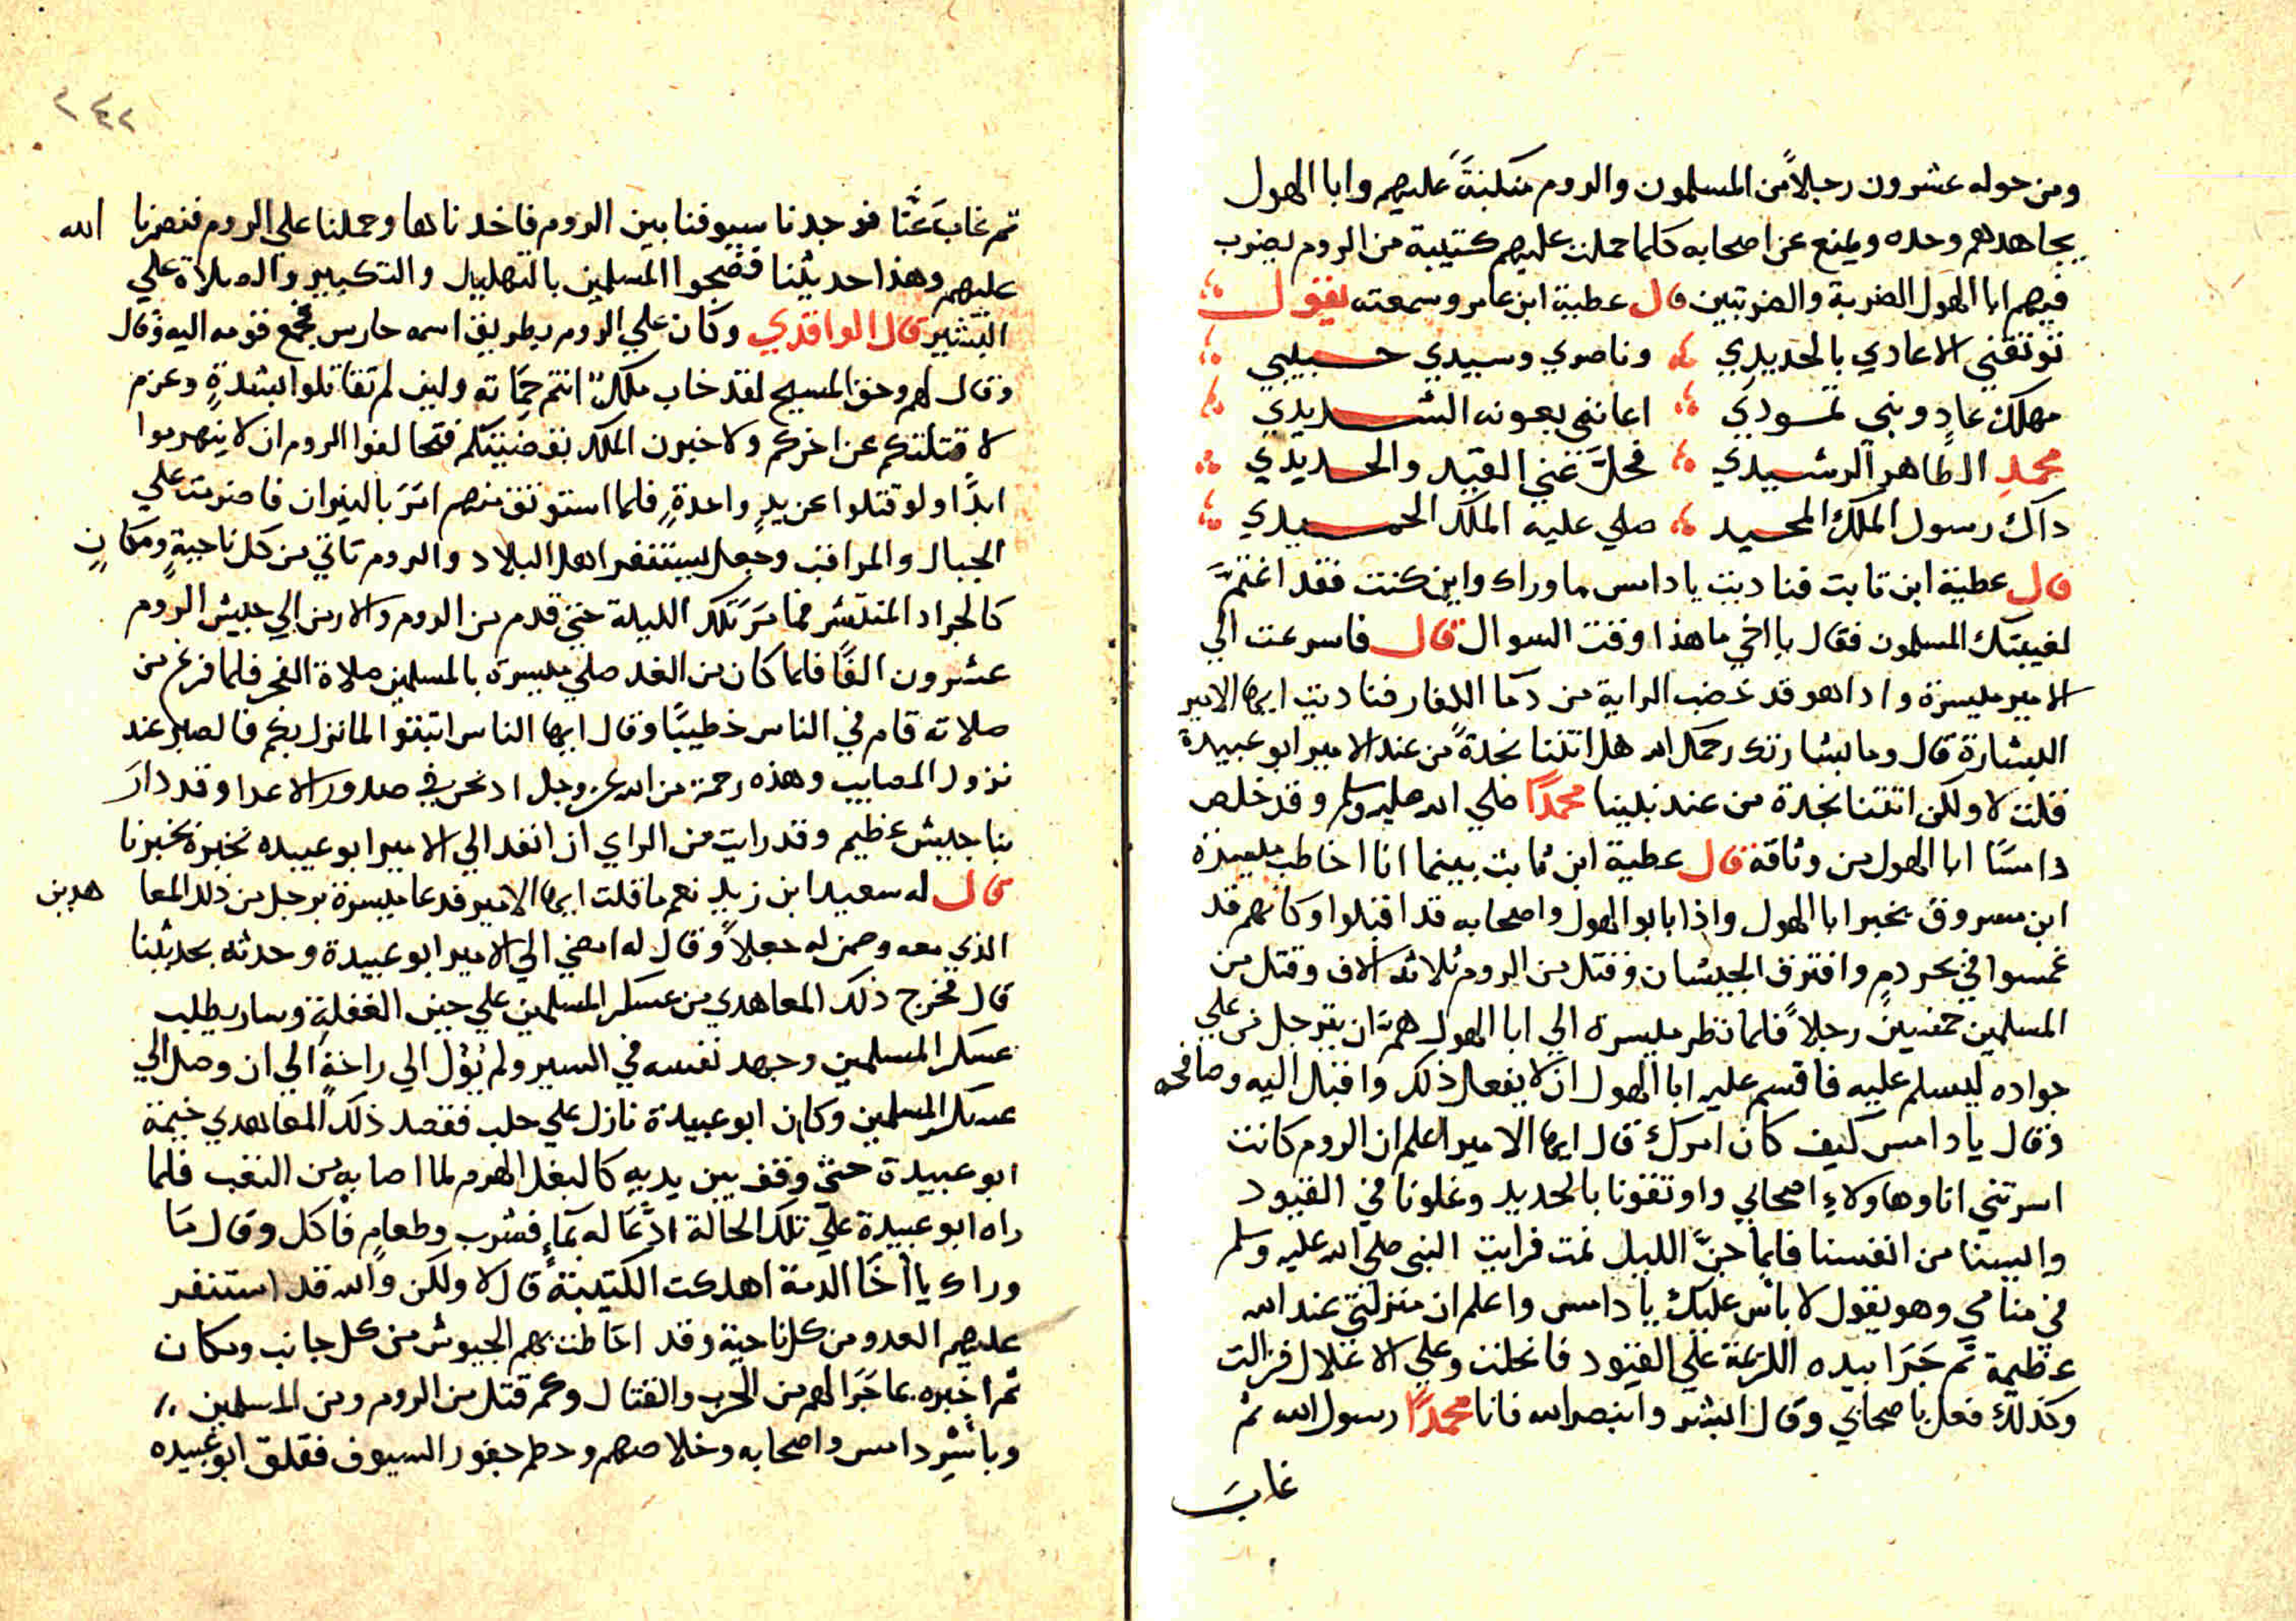 ومن حوله عشرون رجلاً من المسلمون والروم منكبةً عليهم وابا الهول
يجاهدهم وحده ويمنع عن اصحابه كلما حملت عليهم كتيبة من الروم يضرب
فيهم ابا الهول الضربة والضربتين قال عطية ابن عامر وسمعته يقول
توثقني الاعادي بالحديدي وناصري وسيدي حسيبي
مهلك عادٍ وبني ثمودي اعانني بعونه الشديدي
محمدِ الطاهر الرشيدي فحلَّ عني القيد والحديدي
داك رسول الملك المجيد صلي عليه الملك الحميدي
قال عطية ابن ثابت فناديت يا دامس ما وراك واين كنت فقد اغتمَّ
لغيبتك المسلمون فقال يا اخي ما هذا وقت السوال قال فاسرعت الي
الامير ميسرة واداهو قد خضب الراية من دما الكفار فناديت ايها الامير
البشارة قال وما بشارتك رحمك الله هل اتتنا نجدةً من عند الامير ابو عبيدة
قلت لا ولكن اتتنا نجدة من عند نبينا محمدًا صلي الله عليه وسلم وقد خلص
دامسًا ابا الهول من وثاقه قال عطية ابن ثابت بينما انا اخاطب ميسرة
ابن مسروق بخبر ابا الهول واذا بابو الهول واصحابه قد اقبلوا وكانهم قد
غمسوا في بحر دمٍ وافترق الجيشان وقتل من الروم ثلاثة الاف وقتل من
المسلمين خمسين رجلاً فلما نظر ميسرة الي ابا الهول همَّ ان يترجل من علي
جواده ليسلم عليه فاقسم عليه ابا الهول ان لا يفعل ذلك واقبل اليه وصافحه
وقال يا دامس كيف كان امرك قال ايها الامير اعلم ان الروم كانت
اسرتني انا وهاولاءِ اصحابي واوثقونا بالحديد وغلونا في القيود
واليسنا من انفسنا فلما جنَّ الليل نمت فرايت النبي صلي الله عليه وسلم
في منامي وهو يقول لا باس عليك يا دامس واعلم ان منزلتي عند الله
عظيمة ثم جَرَا بيده الكريمة علي القيود فانحلت وعلي الاغلال فزالت
وكذلك فعل باصحابي وقال ابشر وابنصر الله فانا محمدًا رسول الله ثم
غاب
٢٤٢
ثم غابَ عنَّا فوجدنا سيوفنا بين الروم فاخدناها وحملنا علي الروم فنصرنا الله
عليهم وهذا حديثنا فضجوا المسلمين بالتهليل والتكبير والصلاة علي
البشير قال الواقدي وكان علي الروم بطريق اسمه حارس فجمع قومه اليه وقال
وقال لهم وحق المسيح لقد خاب ملكٌ انتم حماته ولين لم تقاتلوا بشدةٍ وعزم
لاقتلنكم عن اخركم ولاخبرن الملك بقضيتكم فتحالفوا الروم ان لا ينهزموا
ابدًا ولو قتلوا عن يدٍ واحدةٍ فلما استوثق منهم امَرَ بالنيران فاضرمت علي
الجبال والمراقب وجعل يستنفر اهل البلاد والروم تاتي من كل ناحيةٍ ومكانٍ
كالجراد المنتشر فما مَرَ تلك الليلة حتي قدم من الروم والارمن الي جيش الروم
عشرون الفًا فلما كان من الغد صلي ميسرة بالمسلمين صلاة الفجر فلما فرغ من
صلاته قام في الناس خطيبًا وقال ايها الناس اتبتوا لما نزل بكم فالصبر عند
نزول المصايب وهذه رحمة من الله عز وجل اد نحن في صدور الاعدا وقد دارَ
بنا جيش عظيم وقد رايت من الراي ان انفد الي الامير ابو عبيده نخبره بخبرنا
قال له سعيد ابن زيدٍ نعم ما قلت ايها الامير فدعا ميسرة برجل من ذلك المعا هدين
الذي معه وضمن له جعلاً وقال له امضي الي الامير ابو عبيدة وحدثه بحديثنا
قال فخرج ذلك المعاهدي من عسكر المسلمين علي حين الغفلةِ وسار يطلب
عسكر المسلمين وجهد نفسه في السير ولم يَؤُل الي راحةٍ الي ان وصل الي
عسكر المسلمين وكان ابو عبيدة نازل علي حلب فقصد ذلك المعاهدي خيمة
ابو عبيدة حتي وقف بين يديه كالبغل الهرم لما اصابه من التعب فلما
راه ابو عبيدة علي تلك الحالة ادَّعَا له بماءٍ فشرب وطعامٍ فاكل وقال مَا
وراك يا أخَا الدمة اهلكت الكتيبة قال لا ولكن والله قد استنفر
عليهم العدو من كل ناحيةٍ وقد احَاطت بهم الجيوش من كل جانب ومكان
ثم اخبره بما جَرَا لهم من الحرب والقتال وكم قتل من الروم ومن المسلمين
وباسْرِ دامس واصحابه وخلاصهم وحطم جفور السيوف فقلق ابو عبيده